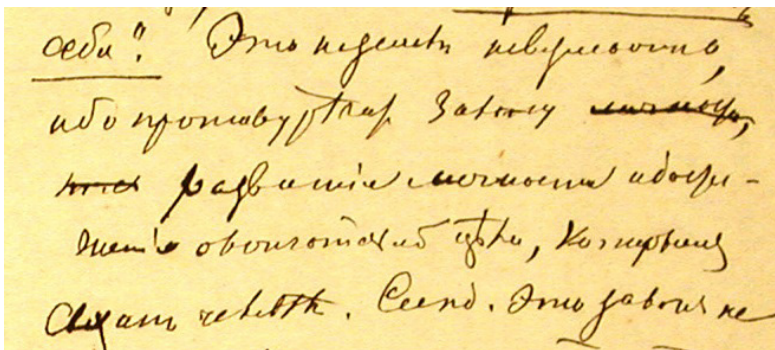 себя". Это на земли невозможно,
ибо противурѣчит закону личности,
развитія личности и дости-
женія окончательной цѣли, которымъ
связанъ человѣк. След. Это законъ не